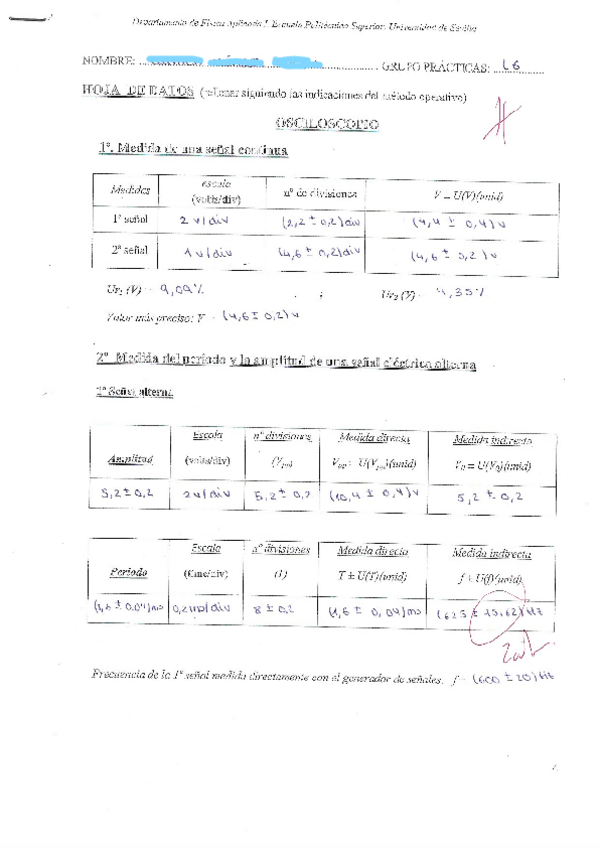 Departamento de Física Aplicada I. Escuela Politécnica Superior. Universidad de Sevilla
NOMBRE: GRUPO PRÁCTICAS: L6
HOJA DE DATOS (rellenar siguiendo las indicaciones del método operativo)
OSCILOSCOPIO
1º. Medida de una señal continua
Medidas escala (volts/div) nº de divisiones V ± U(V)(unid)
1ª señal 2 v/div (2,2 ± 0,2) div (4,4 ± 0,4) v
2ª señal 1 v/div (4,6 ± 0,2) div (4,6 ± 0,2) v
Ur1 (V) = 9,09% ; Ur2 (V) = 4,35%
Valor más preciso: V = (4,6 ± 0,2) v
2º. Medida del período y la amplitud de una señal eléctrica alterna
1ª Señal alterna
Amplitud Escala (volts/div) nº divisiones (Vpp) Medida directa Vpp ± U(Vpp)(unid) Medida indirecta V0 ± U(V0)(unid)
5,2 ± 0,2 2 v/div 5,2 ± 0,2 (10,4 ± 0,4) v 5,2 ± 0,2
Período Escala (time/div) nº divisiones (T) Medida directa T ± U(T)(unid) Medida indirecta f ± U(f)(unid)
(1,6 ± 0,04) ms 0,2 ms/div 8 ± 0,2 (1,6 ± 0,04) ms (625 ± 15,62) Hz
Frecuencia de la 1ª señal medida directamente con el generador de señales: f = (600 ± 20) Hz